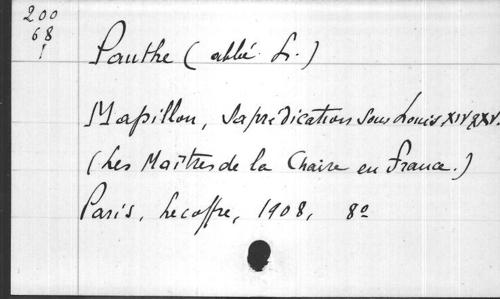 200
68
1
Pauthe (abbé L.)
Massillon, Sa prédication sous Louis XIV & XV.
(Les Maîtres de la Chaire en France.)
Paris, Lecoffre, 1908, 8º